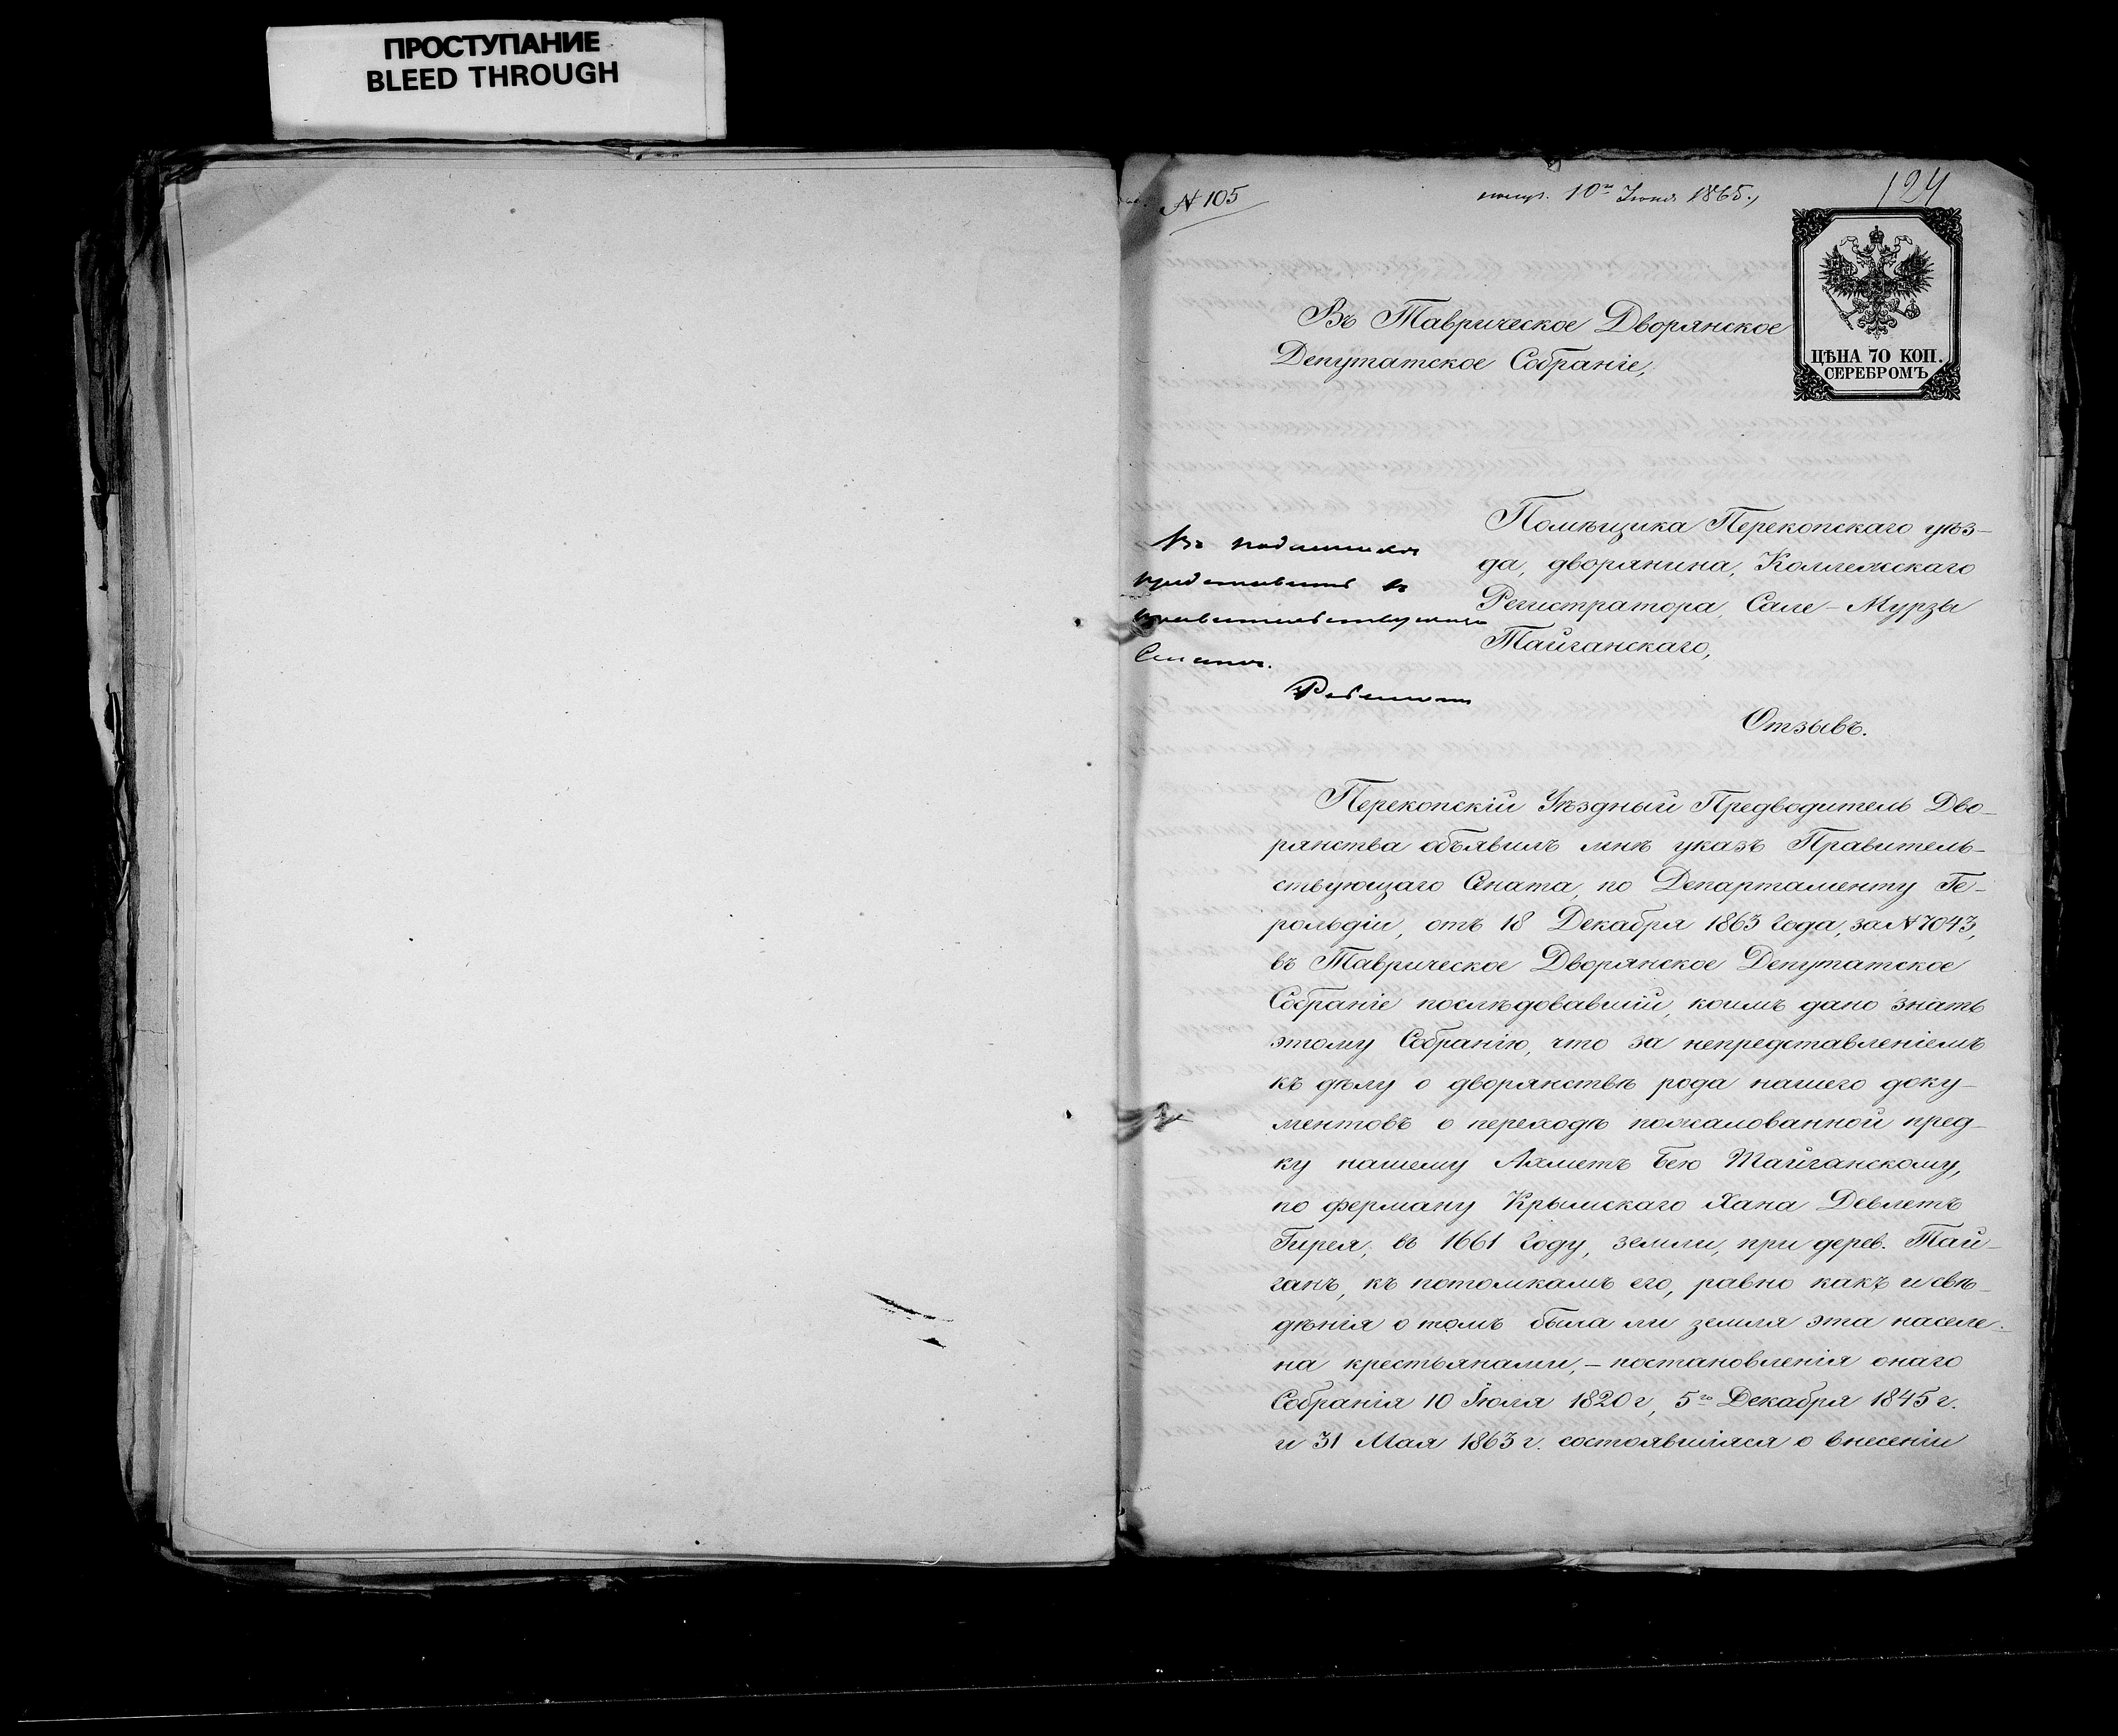 ПРОСТУПАНИЕ
BLEED THROUGH
№ 105
получ. 10го Іюня 1865.
124
Въ Таврическое Дворянское
Депутатское Собраніе,
ЦѢНА 70 КОП.
СЕРЕБРОМЪ
Въ подлинникѣ
представить въ
Правительствующій
Сенатъ.
Помѣщика Перекопскаго уѣз-
да, дворянина, Коллежскаго
Регистратора, Сале-Мурзы
Тайганскаго,
Отзывъ.
Перекопскій Уѣздный Предводитель Дво-
рянства объявилъ мнѣ указъ Правитель-
ствующаго Сената, по Департаменту Ге-
рольдіи, отъ 18 Декабря 1863 года, за № 7043,
въ Таврическое Дворянское Депутатское
Собраніе послѣдовавшій, коимъ дано знать
этому Собранію, что за непредставленіемъ
къ дѣлу о дворянствѣ рода нашего доку-
ментовъ о переходѣ пожалованной пред-
ку нашему Ахметъ Бею Тайганскому,
по ферману Крымскаго Хана Девлетъ
Гирея, въ 1661 году, земли, при дерев. Тай-
ганъ, къ потомкамъ его, равно какъ и свѣ-
дѣнія о томъ была ли земля эта населе-
на крестьянами, - постановленія онаго
Собранія 10 Іюля 1820 г, 5го Декабря 1845 г.
и 31 Мая 1863 г. состоявшіяся о внесеніи